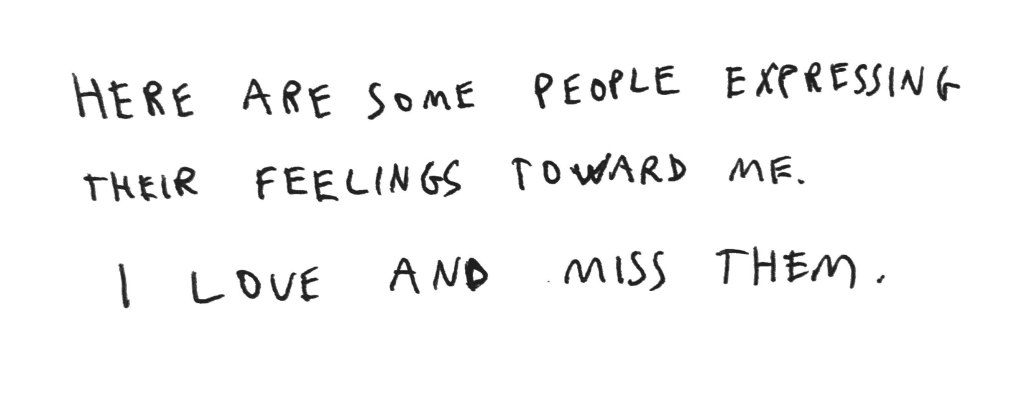 HERE ARE SOME PEOPLE EXPRESSING
THEIR FEELINGS TOWARD ME.
I LOVE AND MISS THEM.